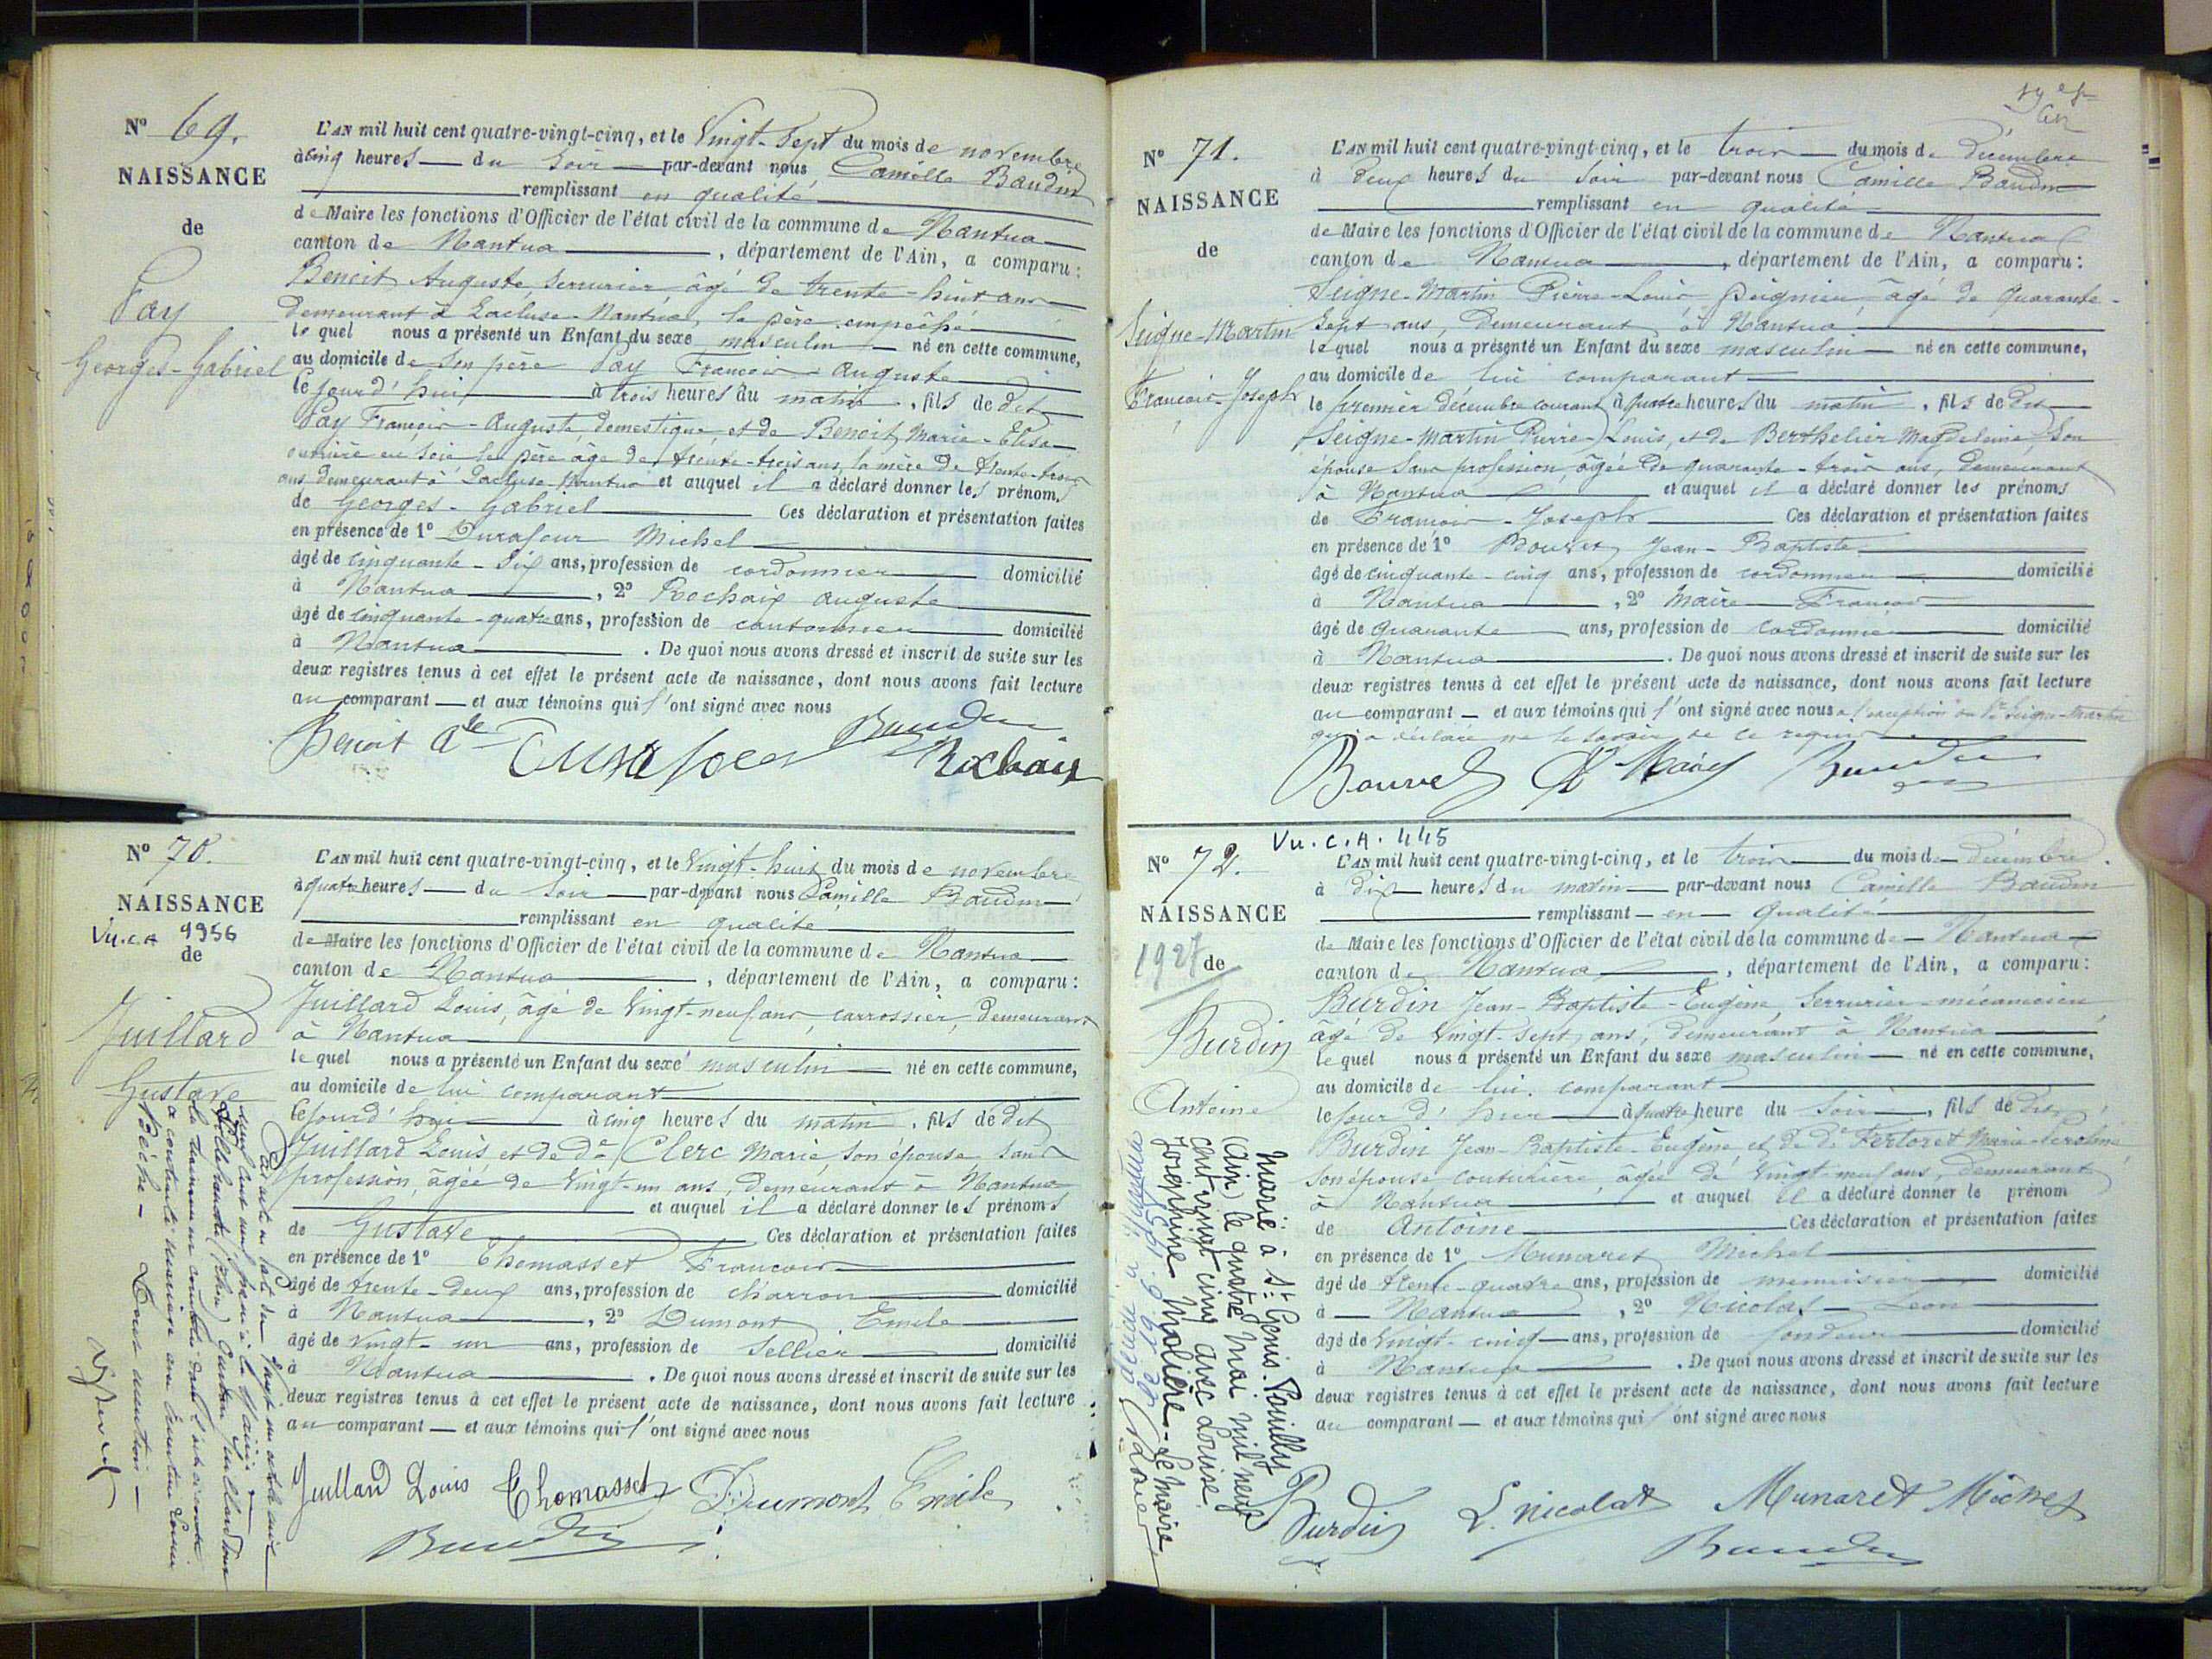 Nº 69.
NAISSANCE
de
Pay
Georges-Gabriel
L'AN mil huit cent quatre-vingt-cinq, et le Vingt-Sept du mois de novembre
à cinq heures du soir par-devant nous Camille Baudin
remplissant en qualité
de Maire les fonctions d'Officier de l'état civil de la commune de Nantua
canton de Nantua, département de l'Ain, a comparu :
Benoit Auguste, serrurier, âgé de trente-huit ans
demeurant à Lacluse-Nantua, le père empêché
le quel nous a présenté un Enfant du sexe masculin né en cette commune,
au domicile de son père Pay François Auguste
le jourd'hui à trois heures du matin, fils de dit
Pay François-Auguste, domestique, et de Benoit, Marie-Elisa
ouvrière en soie le père âgé de trente-trois ans, la mère de trente-trois
ans demeurant à Lacluse Nantua et auquel il a déclaré donner les prénoms
de Georges-Gabriel Ces déclaration et présentation faites
en présence de 1º Durafour Michel
âgé de cinquante-six ans, profession de cordonnier domicilié
à Nantua, 2º Rochaix Auguste
âgé de cinquante-quatre ans, profession de cantonnier domicilié
à Nantua. De quoi nous avons dressé et inscrit de suite sur les
deux registres tenus à cet effet le présent acte de naissance, dont nous avons fait lecture
au comparant et aux témoins qui l'ont signé avec nous
Benoit Durafour Baudin Rochaix
Nº 70.
NAISSANCE
Vu.C.A 9956
de
Juillard
Gustave
L'AN mil huit cent quatre-vingt-cinq, et le Vingt-huit du mois de novembre
à quatre heures du soir par-devant nous Camille Baudin
remplissant en qualité
de Maire les fonctions d'Officier de l'état civil de la commune de Nantua
canton de Nantua, département de l'Ain, a comparu :
Juillard Louis, âgé de Vingt-neuf ans, carrossier, demeurant
à Nantua
le quel nous a présenté un Enfant du sexe masculin né en cette commune,
au domicile de lui comparant
le jourd'hui à cinq heures du matin, fils de dit
Juillard Louis et de De Clerc Marie, son épouse, sans
profession, âgée de vingt-un ans, demeurant à Nantua
et auquel il a déclaré donner les prénoms
de Gustave Ces déclaration et présentation faites
en présence de 1º Thomasset François
âgé de trente-deux ans, profession de charron domicilié
à Nantua, 2º Dumont Emile
âgé de vingt-un ans, profession de Sellier domicilié
à Nantua. De quoi nous avons dressé et inscrit de suite sur les
deux registres tenus à cet effet le présent acte de naissance, dont nous avons fait lecture
au comparant et aux témoins qui l'ont signé avec nous
Juillard Louis Thomasset Dumont Emile
Baudin
Nº 71.
NAISSANCE
de
Seigne-Martin
François-Joseph
L'AN mil huit cent quatre-vingt-cinq, et le trois du mois de décembre
à deux heures du soir par-devant nous Camille Baudin
remplissant en qualité
de Maire les fonctions d'Officier de l'état civil de la commune de Nantua
canton de Nantua, département de l'Ain, a comparu :
Seigne-Martin Pierre-Louis peignier âgé de quarante-
sept ans, demeurant à Nantua
le quel nous a présenté un Enfant du sexe masculin né en cette commune,
au domicile de lui comparant
le premier décembre courant à quatre heures du matin, fils de dit
Seigne-Martin Pierre-Louis, et de Berthelier Magdeleine, son
épouse sans profession, âgée de quarante-trois ans, demeurant
à Nantua et auquel il a déclaré donner les prénoms
de François-Joseph Ces déclaration et présentation faites
en présence de 1º Bouvet Jean-Baptiste
âgé de cinquante-cinq ans, profession de cordonnier domicilié
à Nantua, 2º Maire François
âgé de quarante ans, profession de cordonnier domicilié
à Nantua. De quoi nous avons dressé et inscrit de suite sur les
deux registres tenus à cet effet le présent acte de naissance, dont nous avons fait lecture
au comparant et aux témoins qui l'ont signé avec nous à l'exception du Seigne-Martin
qui a déclaré ne le savoir de ce requis
Bouvet Maire Baudin
Vu.C.A. 445
Nº 72.
NAISSANCE
1927 de
Burdin
Antoine
L'AN mil huit cent quatre-vingt-cinq, et le trois du mois de décembre
à dix heures du matin par-devant nous Camille Baudin
remplissant en qualité
de Maire les fonctions d'Officier de l'état civil de la commune de Nantua
canton de Nantua, département de l'Ain, a comparu :
Burdin Jean-Baptiste-Eugène, serrurier-mécanicien
âgé de vingt-sept ans, demeurant à Nantua
le quel nous a présenté un Enfant du sexe masculin né en cette commune,
au domicile de lui comparant
le jour d'hier à quatre heure du soir, fils de dit
Burdin Jean-Baptiste-Eugène, et de De Fertoret Marie-Péroline
son épouse couturière, âgée de vingt-neuf ans, demeurant
à Nantua et auquel il a déclaré donner le prénom
de Antoine Ces déclaration et présentation faites
en présence de 1º Munaret Michel
âgé de trente-quatre ans, profession de menuisier domicilié
à Nantua, 2º Nicolas Léon
âgé de vingt-cinq ans, profession de fondeur domicilié
à Nantua. De quoi nous avons dressé et inscrit de suite sur les
deux registres tenus à cet effet le présent acte de naissance, dont nous avons fait lecture
au comparant et aux témoins qui l'ont signé avec nous
Burdin L. Nicolas Munaret Michel
Baudin
Marié à St Genis-Pouilly
(Ain) le quatre mai mil neuf
cent vingt cinq avec Louise
Joséphine Molière - Le Maire